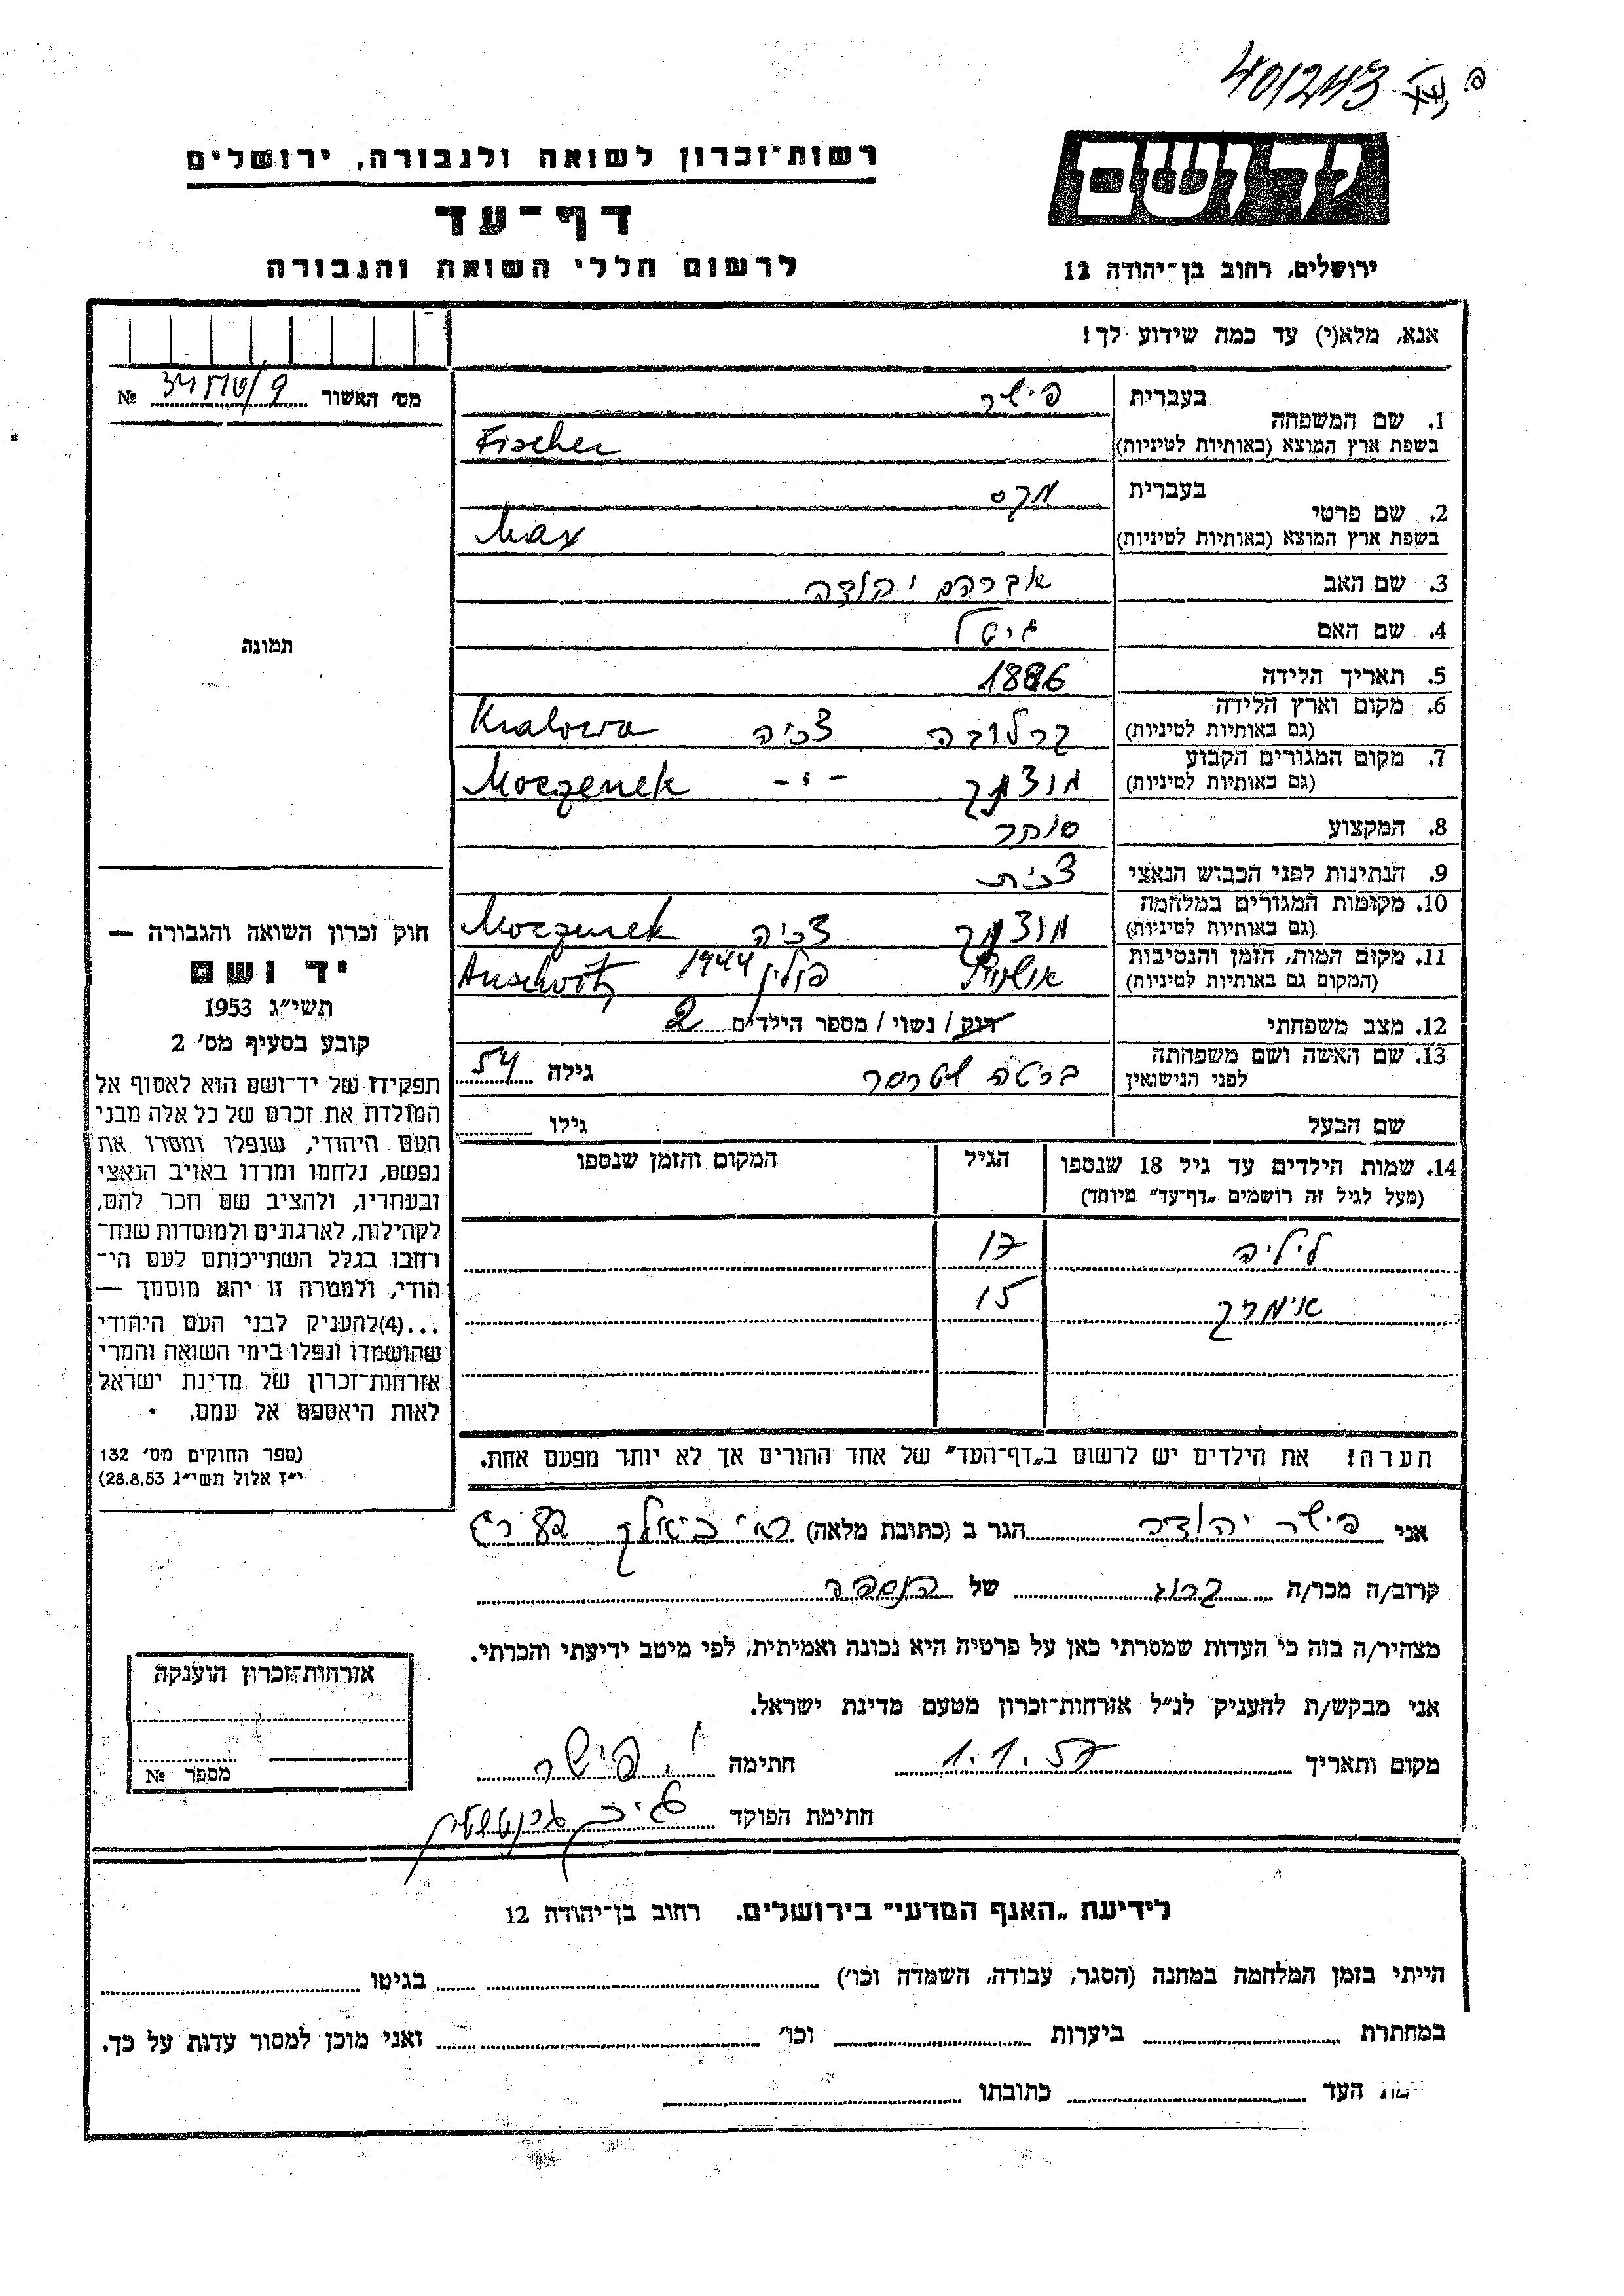 40/243
יד ושם
רשות־זכרון לשואה ולגבורה, ירושלים
דף־עד
לרשום חללי השואה והגבורה
ירושלים, רחוב בן־יהודה 12
אנא, מלא(י) עד כמה שידוע לך!
מס׳ האשור №
1. שם המשפחה בעברית פישר
בשפת ארץ המוצא (באותיות לטיניות) Fischer
2. שם פרטי בעברית מקס
בשפת ארץ המוצא (באותיות לטיניות) Max
3. שם האב אברהם יהודה
4. שם האם גיטל
5. תאריך הלידה 1886
6. מקום וארץ הלידה (גם באותיות לטיניות) קרלובה צ׳כיה Kralowa
7. מקום המגורים הקבוע (גם באותיות לטיניות) מוצנק -"- Moczenek
8. המקצוע סוחר
9. הנתינות לפני הכבוש הנאצי צ׳כית
10. מקומות המגורים במלחמה (גם באותיות לטיניות) מוצנק צ׳כיה Moczenek
11. מקום המות, הזמן והנסיבות (המקום גם באותיות לטיניות) אושויץ פולין 1944 Auschwitz
12. מצב משפחתי רוק / נשוי / מספר הילדים 2
13. שם האשה ושם משפחתה לפני הנישואין ברטה שטרסר גילה 54
שם הבעל גילו
14. שמות הילדים עד גיל 18 שנספו הגיל המקום והזמן שנספו
(מעל לגיל זה רושמים „דף־עד" מיוחד)
ליליה 17
אימרך 15
הערה! את הילדים יש לרשום ב„דף־העד" של אחד ההורים אך לא יותר מפעם אחת.
תמונה
חוק זכרון השואה והגבורה —
יד ושם
תשי״ג 1953
קובע בסעיף מס׳ 2
תפקידו של יד־ושם הוא לאסוף אל
המולדת את זכרם של כל אלה מבני
העם היהודי, שנפלו ומסרו את
נפשם, נלחמו ומרדו באויב הנאצי
ובעוזריו, ולהציב שם וזכר להם,
לקהילות, לארגונים ולמוסדות שנח־
רבו בגלל השתייכותם לעם הי־
הודי, ולמטרה זו יהא מוסמך —
...(4)להעניק לבני העם היהודי
שהושמדו ונפלו בימי השואה והמרי
אזרחות־זכרון של מדינת ישראל
לאות היאספם אל עמם.
(ספר החוקים מס׳ 132
י״ז אלול תשי״ג 28.8.53)
אני פישר יהודה הגר ב (כתובת מלאה)
קרוב/ה מכר/ה קרוב של הנספה
מצהיר/ה בזה כי העדות שמסרתי כאן על פרטיה היא נכונה ואמיתית, לפי מיטב ידיעתי והכרתי.
אני מבקש/ת להעניק לנ״ל אזרחות־זכרון מטעם מדינת ישראל.
מקום ותאריך 1.1.57 חתימה י. פישר
חתימת הפוקד
אזרחות־זכרון הוענקה
מספר №
לידיעת „האגף המדעי" בירושלים. רחוב בן־יהודה 12
הייתי בזמן המלחמה במחנה (הסגר, עבודה, השמדה וכו׳) בגיטו
במחתרת ביערות וכו׳ ואני מוכן למסור עדות על כך.
העד כתובתו